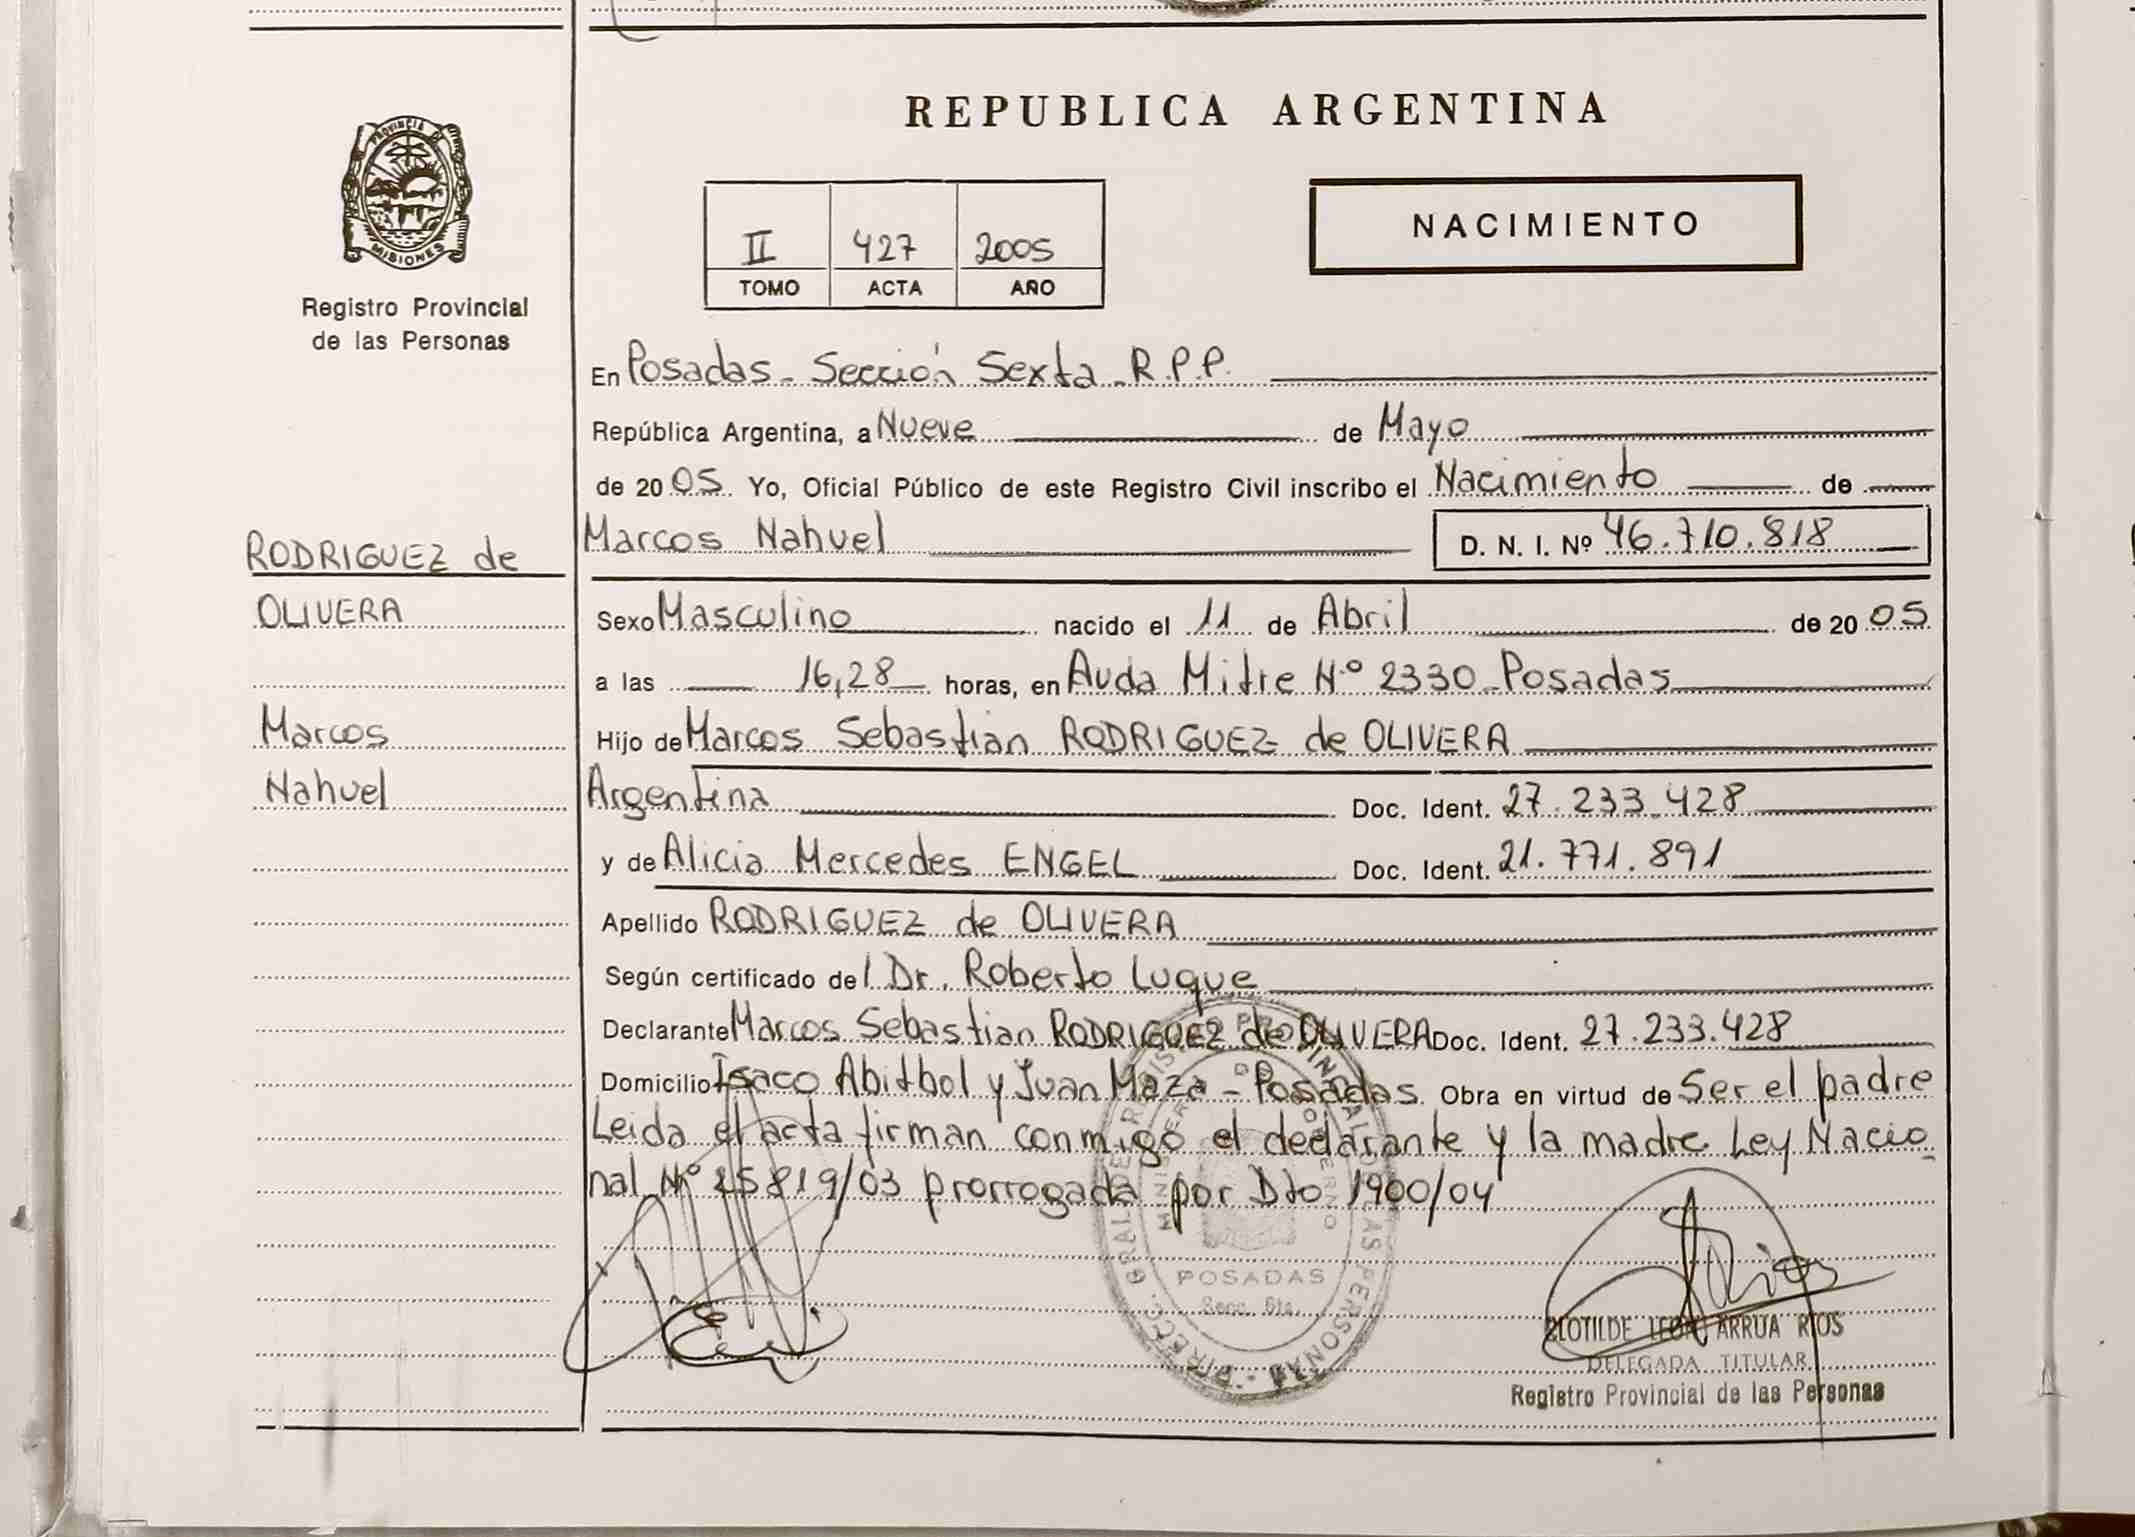 REPUBLICA ARGENTINA
PROVINCIA DE
MISIONES
Registro Provincial
de las Personas
II 427 2005
TOMO ACTA AÑO
NACIMIENTO
En Posadas - Sección Sexta - R.P.P.
República Argentina, a Nueve de Mayo
de 2005. Yo, Oficial Público de este Registro Civil inscribo el Nacimiento de
Marcos Nahuel D. N. I. Nº 46.710.818
RODRIGUEZ de
OLIVERA
Marcos
Nahuel
Sexo Masculino nacido el 11 de Abril de 2005
a las 16,28 horas, en Avda Mitre Nº 2330 - Posadas
Hijo de Marcos Sebastian RODRIGUEZ de OLIVERA
Argentina Doc. Ident. 27.233.428
y de Alicia Mercedes ENGEL Doc. Ident. 21.771.891
Apellido RODRIGUEZ de OLIVERA
Según certificado del Dr. Roberto Luque
Declarante Marcos Sebastian RODRIGUEZ de OLIVERA Doc. Ident. 27.233.428
Domicilio Isaco Abitbol y Juan Meza - Posadas Obra en virtud de Ser el padre
Leida el acta firman conmigo el declarante y la madre Ley Nacio
nal Nº 25819/03 prorrogada por Dto 1900/04
DIRECC. GRAL. DE REGISTRO PROVINCIAL DE LAS PERSONAS
MINISTERIO DE GOBIERNO
POSADAS
Secc. 6ta.
Rios
CLOTILDE LEON ARRUA RIOS
DELEGADA TITULAR
Registro Provincial de las Personas